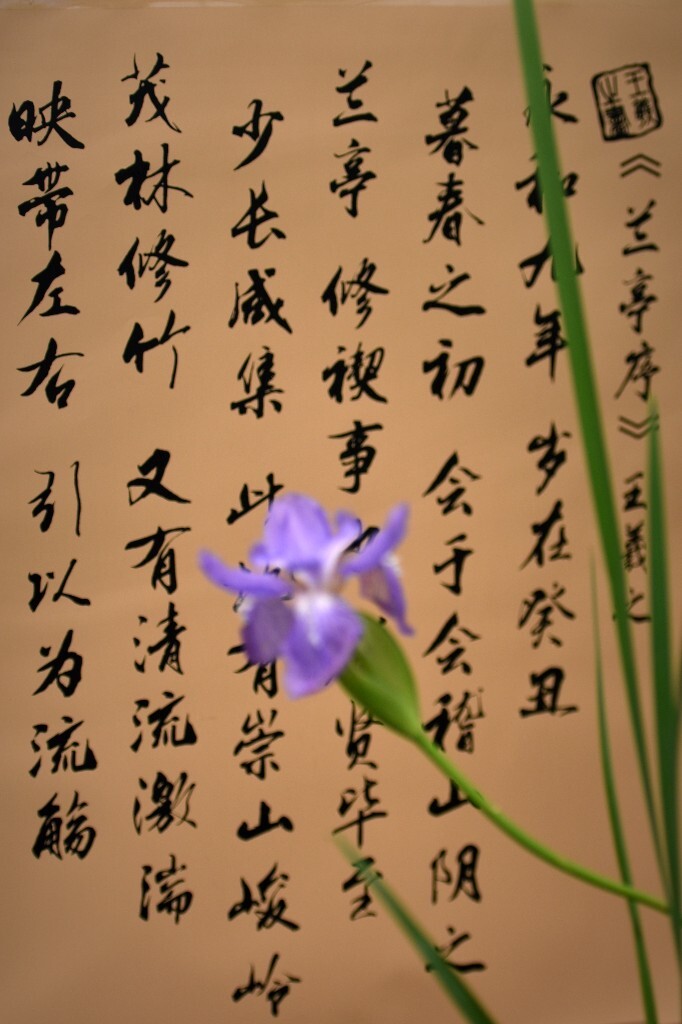 《兰亭序》王羲之
永和九年 岁在癸丑
暮春之初 会于会稽山阴之
兰亭 修禊事 贤毕至
少长咸集 此有崇山峻岭
茂林修竹 又有清流激湍
映帶左右 引以为流觞